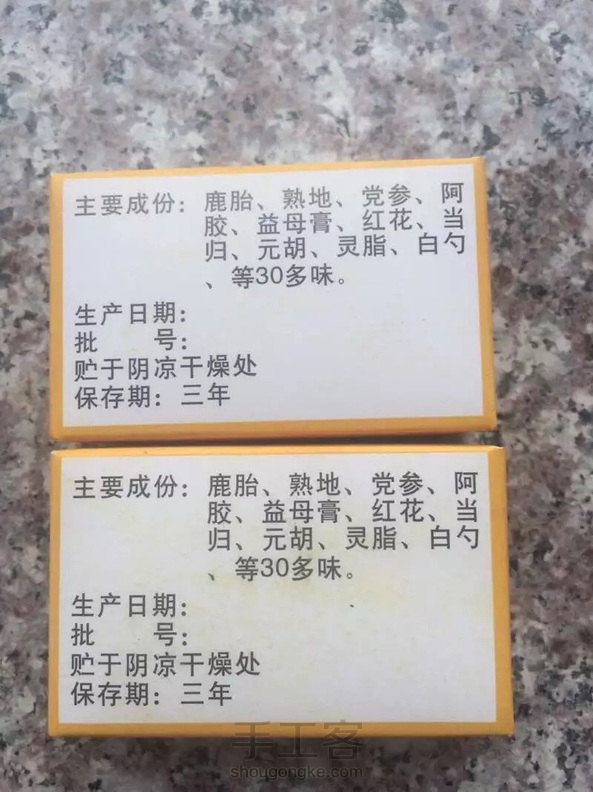 主要成份：鹿胎、熟地、党参、阿
胶、益母膏、红花、当
归、元胡、灵脂、白勺
、等30多味。
生产日期：
批　　号：
贮于阴凉干燥处
保存期：三年
主要成份：鹿胎、熟地、党参、阿
胶、益母膏、红花、当
归、元胡、灵脂、白勺
、等30多味。
生产日期：
批　　号：
贮于阴凉干燥处
保存期：三年
手工客
shougongke.com